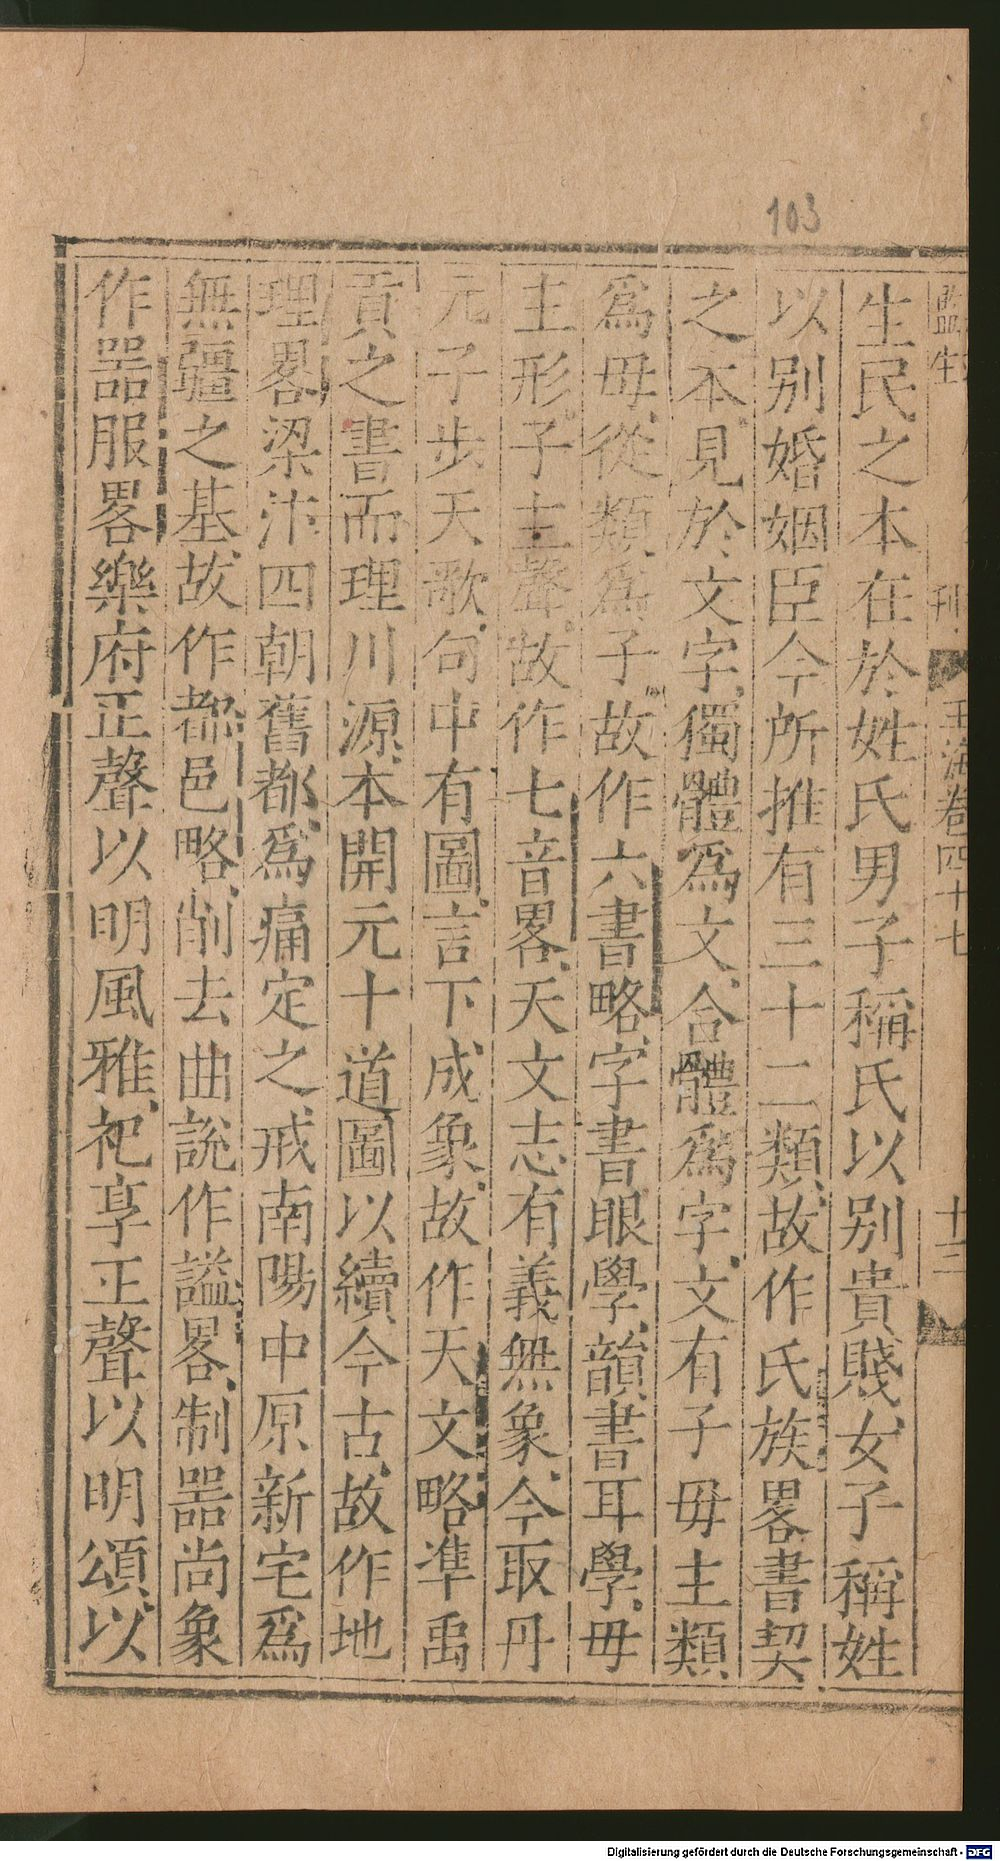 103
監生
刊
玉海卷四十七
十三
生民之本在於姓氏男子稱氏以别貴賤女子稱姓
以别婚姻臣今所推有三十二類故作氏族畧書契
之本見於文字獨體爲文合體爲字文有子毋主類
爲毋從類爲子故作六書略字書眼學韻書耳學毋
主形子主聲故作七音畧天文志有義無象今取丹
元子步天歌句中有圖言下成象故作天文略準禹
貢之書而理川源本開元十道圖以續今古故作地
理畧梁汴四朝舊都爲痛定之戒南陽中原新宅爲
無疆之基故作都邑略削去曲說作謚畧制噐尚象
作噐服畧樂府正聲以明風雅祀享正聲以明頌以
Digitalisierung gefördert durch die Deutsche Forschungsgemeinschaft - DFG